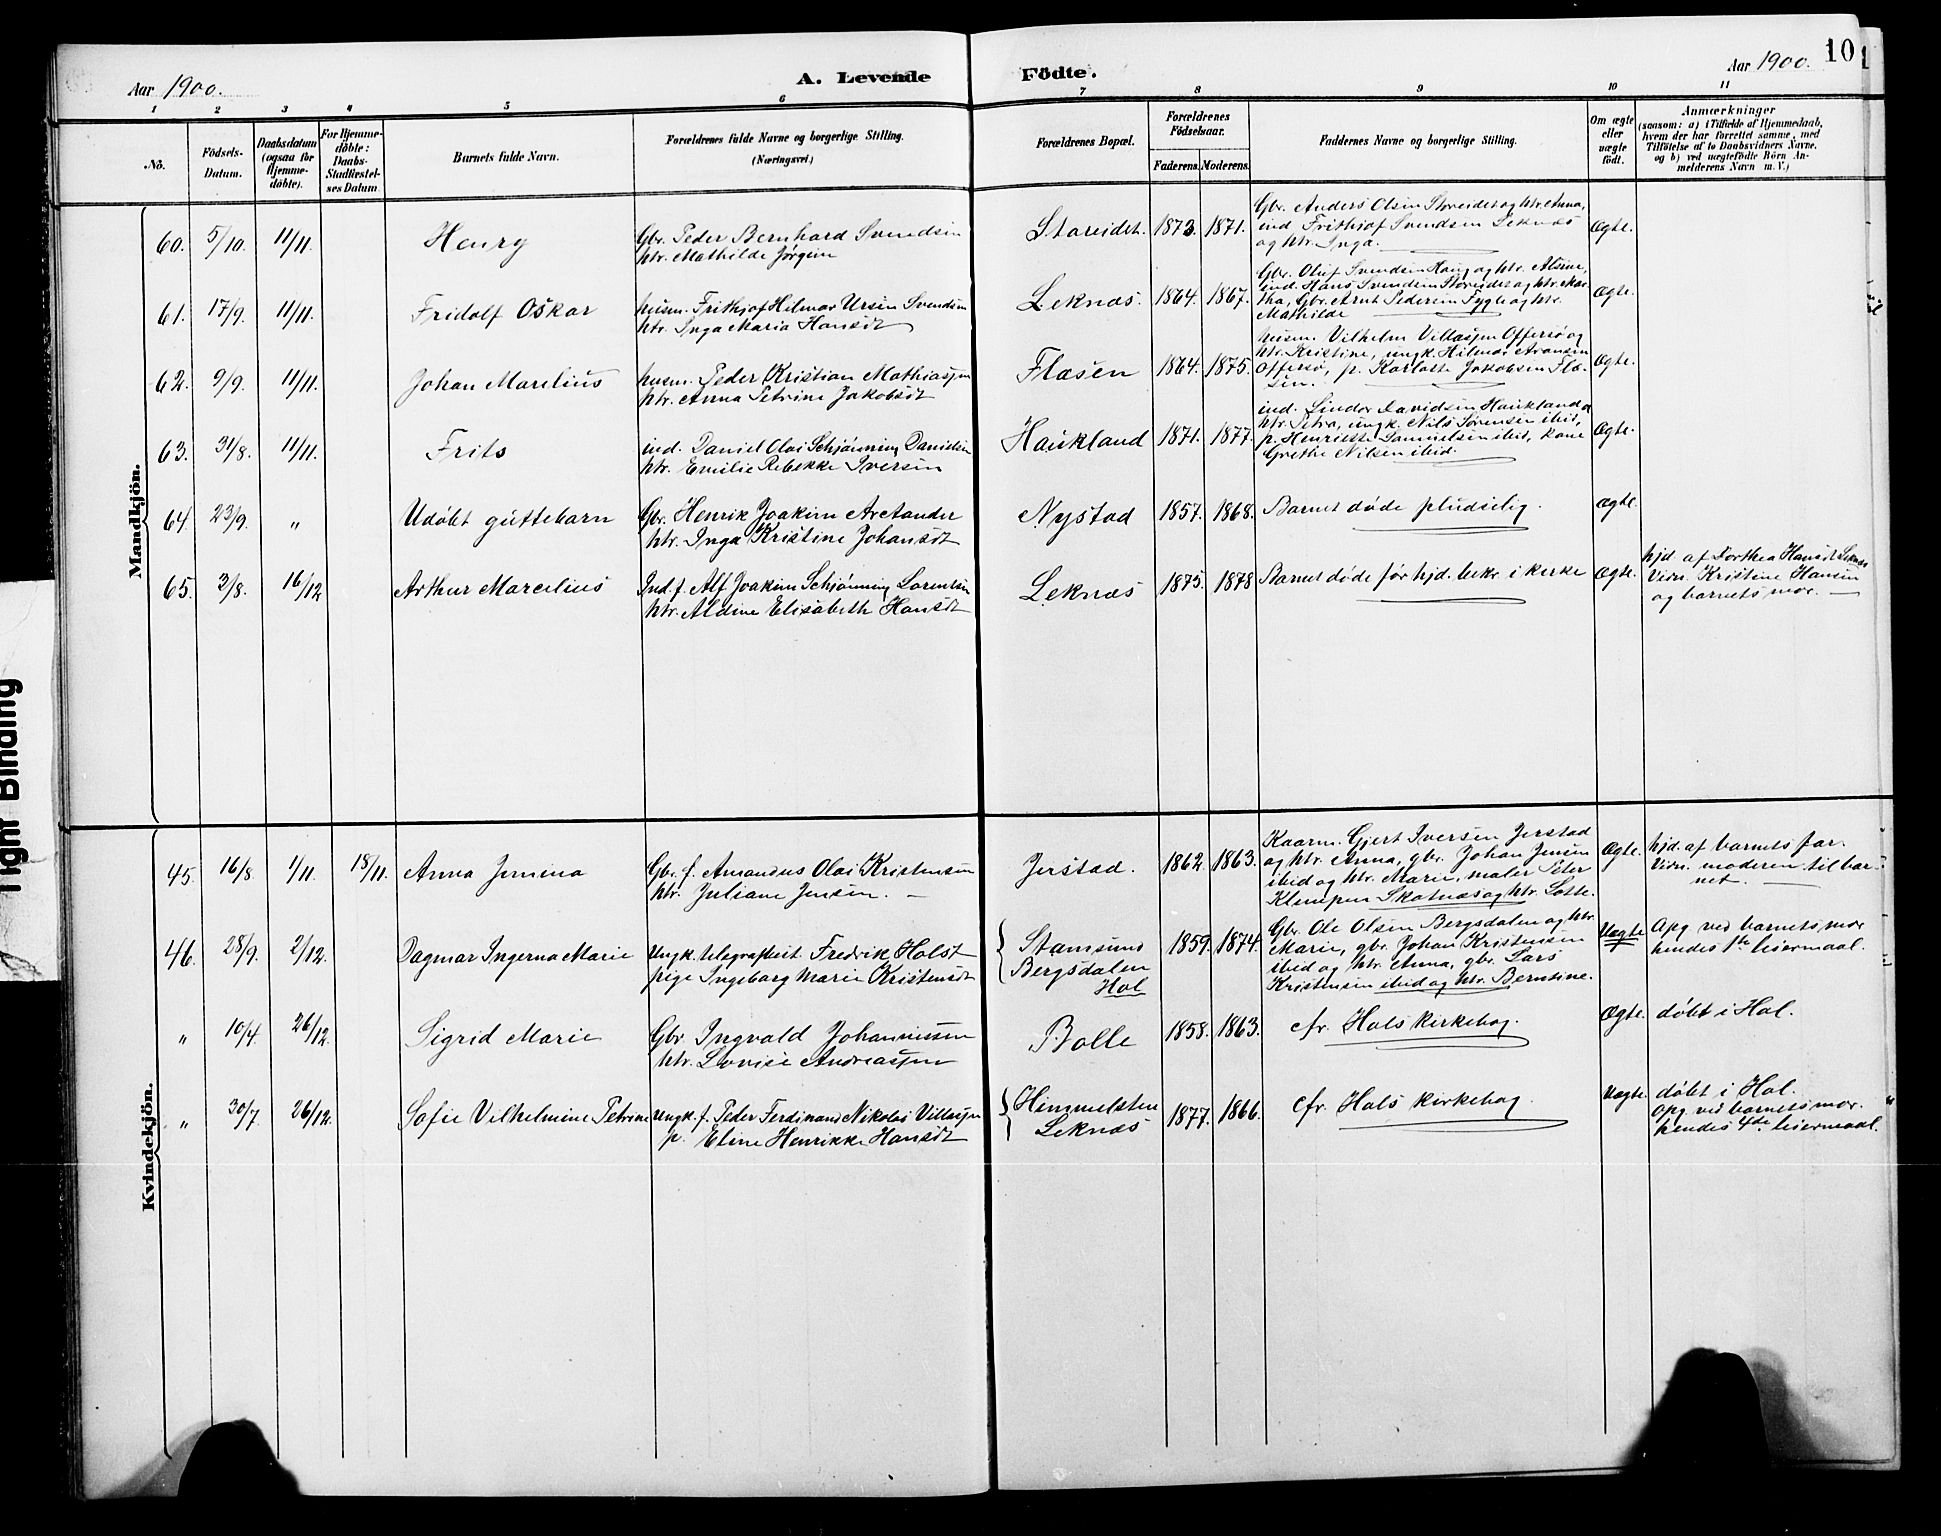 Aar 1900.
A. Levende Födte.
Aar 1900.
10
1 2 3 4 5 6 7 8 9 10 11
No.
Födsels-
Datum.
Daabsdatum
(ogsaa for
Hjemme-
døbte).
For Hjemme-
døbte:
Daabs-
Stadfæstel-
ses Datum.
Barnets fulde Navn.
Forældrenes fulde Navne og borgerlige Stilling.
(Næringsvei.)
Forældrenes Bopæl.
Forældrenes
Födselsaar.
Faderens. Moderens.
Faddernes Navne og borgerlige Stilling.
Om ægte
eller
uægte
født.
Anmærkninger
(saasom: a) i Tilfælde af Hjemmedaab,
hvem der har forrettet samme, med
Tilföielse af to Daabsvidners Navne,
og b) ved uægtefödte Börn An-
melderens Navn m. V.)
Mandkjön.
60. 5/10. 11/11. Henry
Gbr. Peder Bernhard Svendsen
htr. Mathilde Jørgine
Storeidet. 1873. 1871.
Gbr. Anders Olsen Storeidet og htr. Anna,
ind. Frithjof Svendsen Leknæs
og htr. Inga.
Ægte.
61. 17/9. 11/11. Fridolf Oskar
husm. Frithjof Hilmar Ursin Svendsen
htr. Inga Maria Hansdt
Leknæs. 1864. 1867.
Gbr. Oluf Svendsen Haug og htr. Alsine,
ind. Hans Svendsen Storeidet og htr. Mar-
tha, Gbr. Arnt Pedersen Fygle og htr.
Mathilde
Ægte.
62. 9/9. 11/11. Johan Marelius
husm. Peder Kristian Mathiassen
htr. Anna Petrine Jakobsdt
Flæsen 1864. 1875.
husm. Vilhelm Villassen Offersø og
htr. Kristine, ungk. Hilmar Aronsen
Offersø, p. Karlotte Jakobsen Flæ-
sen.
Ægte.
63. 31/8. 11/11. Frits
ind. Daniel Olai Schjønning Danielsen
htr. Emilie Rebekke Iversen
Haukland 1871. 1877.
ind. Sindor Davidsen Haukland og
htr. Petra, ungk. Nils Sørensen ibid,
p. Henriette Samuelsen ibid, kone
Grethe Nilsen ibid.
Ægte.
64. 23/9. " Udøbt guttebarn
Gbr. Henrik Joakim Arctander
htr. Inga Kristine Johansdt
Nystad 1857. 1868. Barnet døde pludselig. Ægte.
65. 3/8. 16/12 Arthur Marcelius
Ind. f. Alf Joakim Schjønning Lorentsen
htr. Aldine Elisabeth Hansdt
Leknæs 1875. 1878 Barnet døde før hjd. bekr. i kirke Ægte.
hjd. af Dorthea Hansdt Leknæs
Vidn. Kristine Hansen
og barnets mor.
Kvindekjön.
45. 16/8. 1/11. 18/11. Anna Jensina
Gbr. f. Amandus Olai Kristensen
htr. Juliane Jensen.
Jerstad. 1862. 1863.
Kaarm. Gjert Iversen Jerstad
og htr. Anna, gbr. Johan Jensen
ibid og htr. Marie, maler Peter
Klempen Skotnæs og htr. Lotte.
Ægte.
hjd. af barnets far.
Vidn. moderen til bar-
net.
46. 28/9. 2/12. Dagmar Ingerna Marie
Ungk. telegrafbest. Fredrik Holst
pige Ingeborg Marie Kristensdt
Stamsund
Bergsdalen
Hol
1859. 1874.
Gbr. Ole Olsen Bergsdalen og htr
Marie, gbr. Johan Kristensen
ibid og htr. Anna, gbr. Lars
Kristensen ibid og htr. Berntine.
Uægte
Opg. ved barnets mor
hendes 1ste leiermaal.
" 10/4. 26/12. Sigrid Marie
Gbr. Ingvald Johannessen
htr. Lovise Andreassen
Bolle 1858. 1863. cfr. Hols kirkebog. Ægte. døbt i Hol.
" 30/7. 26/12. Sofie Vilhelmine Petrine
Ungk. f. Peder Ferdinand Nikolai Villassen
p. Eline Henrikke Hansdt
Himmelsten
Leknæs
1877. 1866. cfr. Hols kirkebog. Uægte.
døbt i Hol.
Opg. ved barnets mor.
hendes 4de leiermaal.
Tight Binding